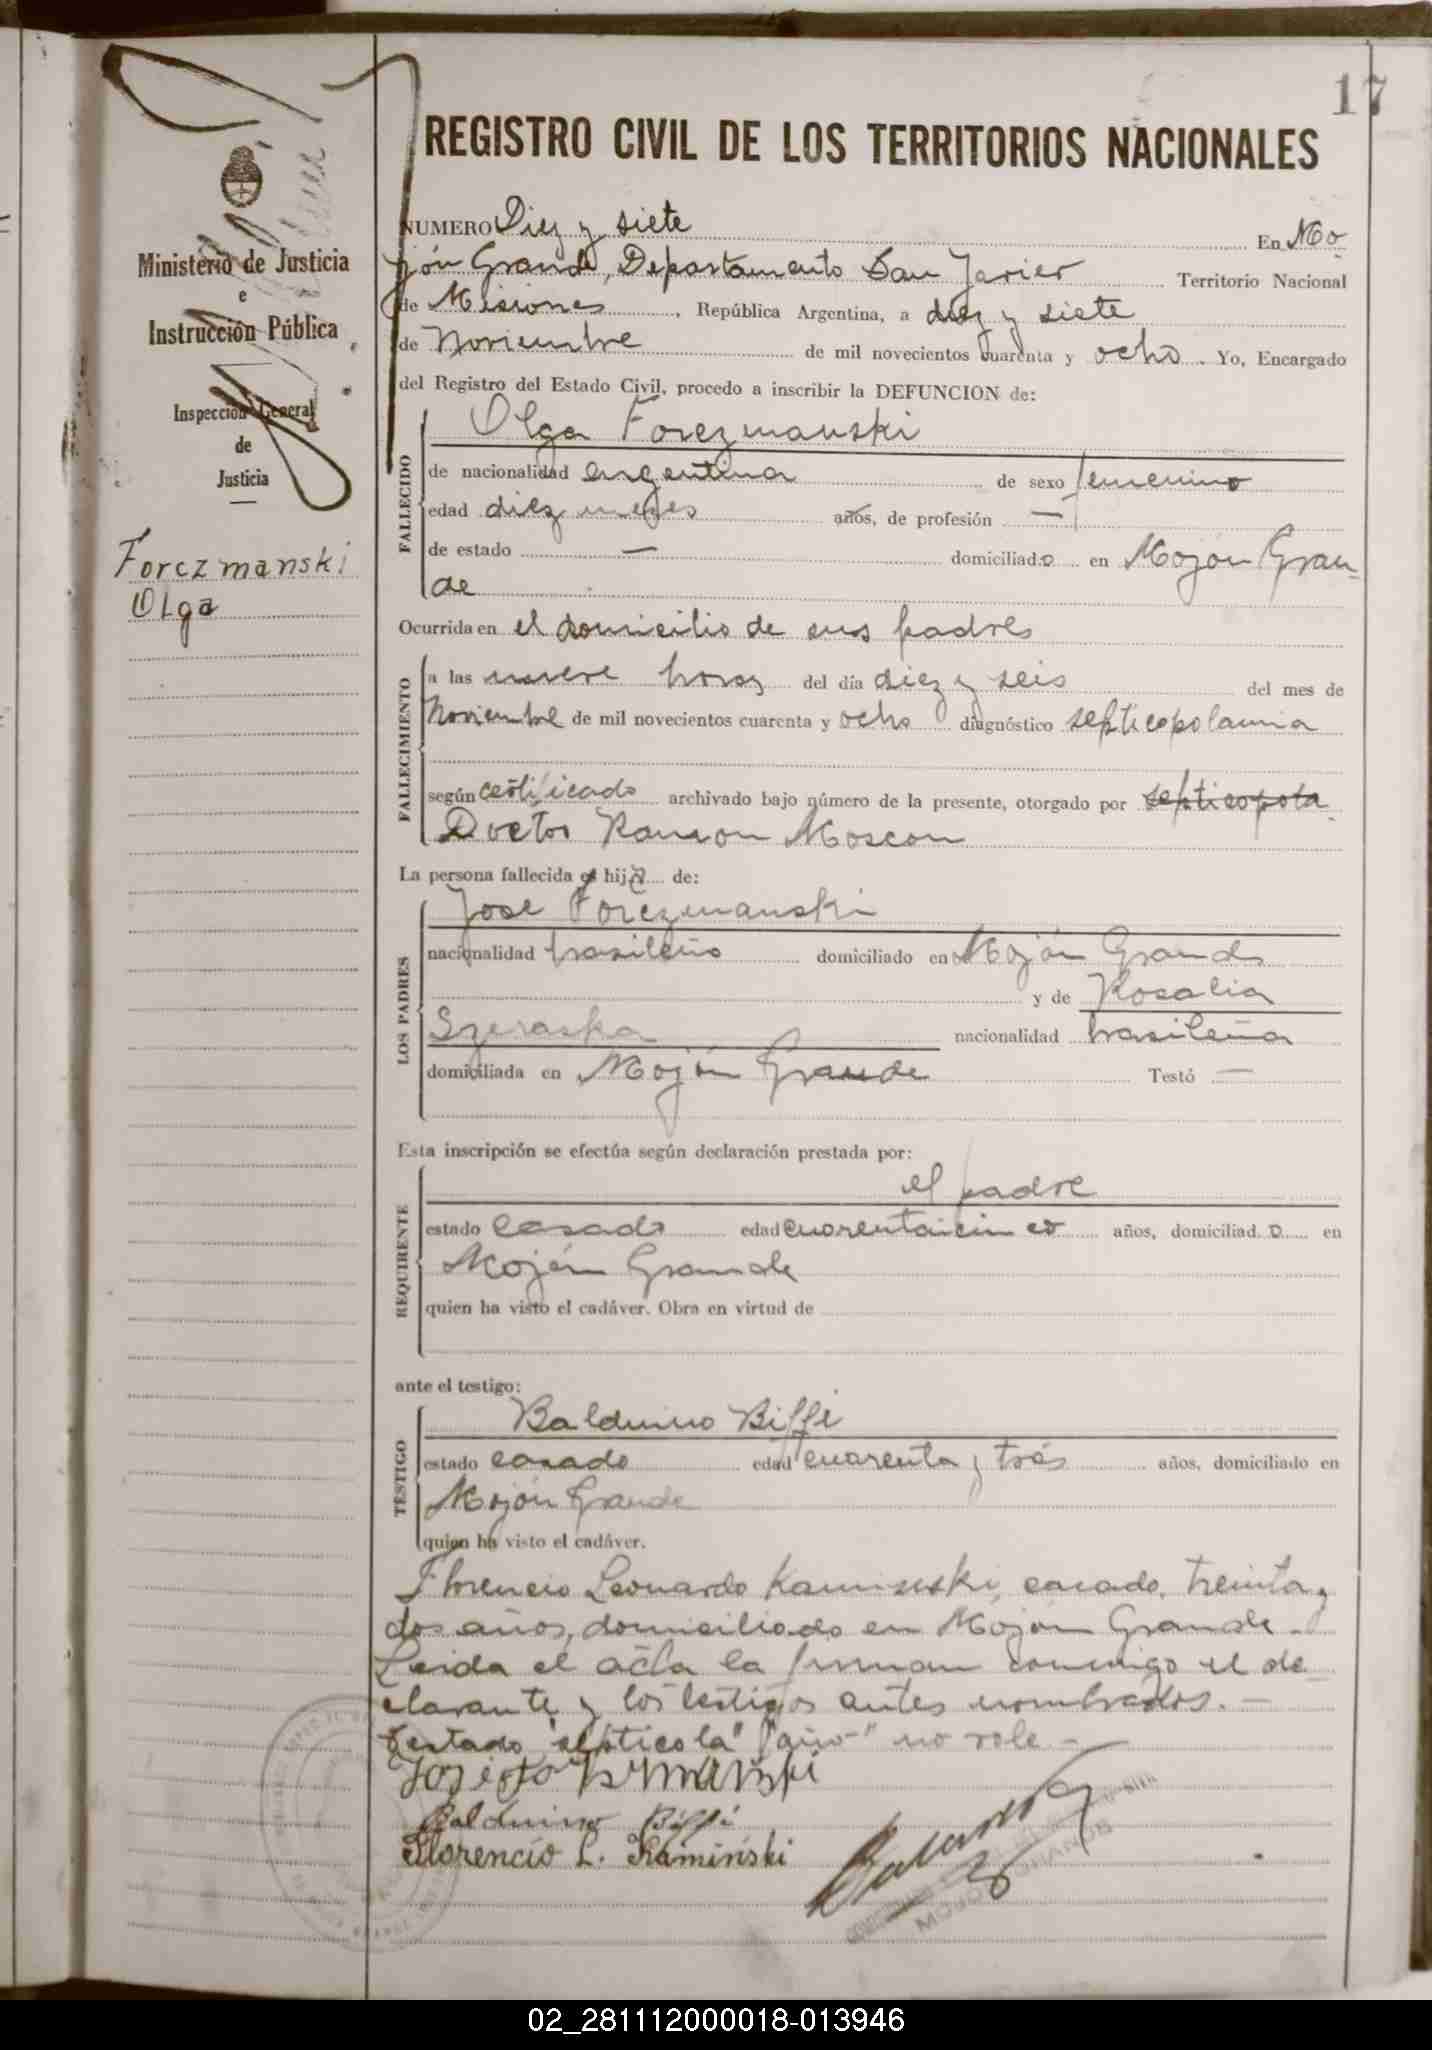 17
REGISTRO CIVIL DE LOS TERRITORIOS NACIONALES
Ministerio de Justicia
e
Instrucción Pública
Inspección General
de
Justicia
Forczmanski
Olga
NUMERO Diez y siete En Mo
jón Grande, Departamento San Javier Territorio Nacional
de Misiones, República Argentina, a diez y siete
de Noviembre de mil novecientos cuarenta y ocho. Yo, Encargado
del Registro del Estado Civil, procedo a inscribir la DEFUNCION de:
FALLECIDO
Olga Forczmanski
de nacionalidad argentina de sexo femenino
edad diez meses años, de profesión —
de estado — domiciliado en Mojón Gran-
de
Ocurrida en el domicilio de sus padres
FALLECIMIENTO
a las nueve horas del día diez y seis del mes de
Noviembre de mil novecientos cuarenta y ocho diagnóstico septicopolamia
según certificado archivado bajo número de la presente, otorgado por septicopola
Doctor Ramon Moscon
La persona fallecida es hija de:
LOS PADRES
Jose Forczmanski
nacionalidad brasileño domiciliado en Mojón Grande
y de Rosalia
Szeraska nacionalidad brasileña
domiciliada en Mojón Grande Testó —
Esta inscripción se efectúa según declaración prestada por:
REQUIRENTE
el padre
estado casado edad cuarentaicinco años, domiciliado en
Mojón Grande
quien ha visto el cadáver. Obra en virtud de
ante el testigo:
TESTIGO
Balduino Biffi
estado casado edad cuarenta y trés años, domiciliado en
Mojón Grande
quien ha visto el cadáver.
Florencio Leonardo Kaminski, casado, treinta y
dos años, domiciliado en Mojón Grande.-
Leida el acta la firman conmigo el de
clarante y los testigos antes nombrados.—
Testado "septicola" "año" no vale —
Balduino Biffi
Florencio L. Kamiński
MOJON GRANDE
02_281112000018-013946